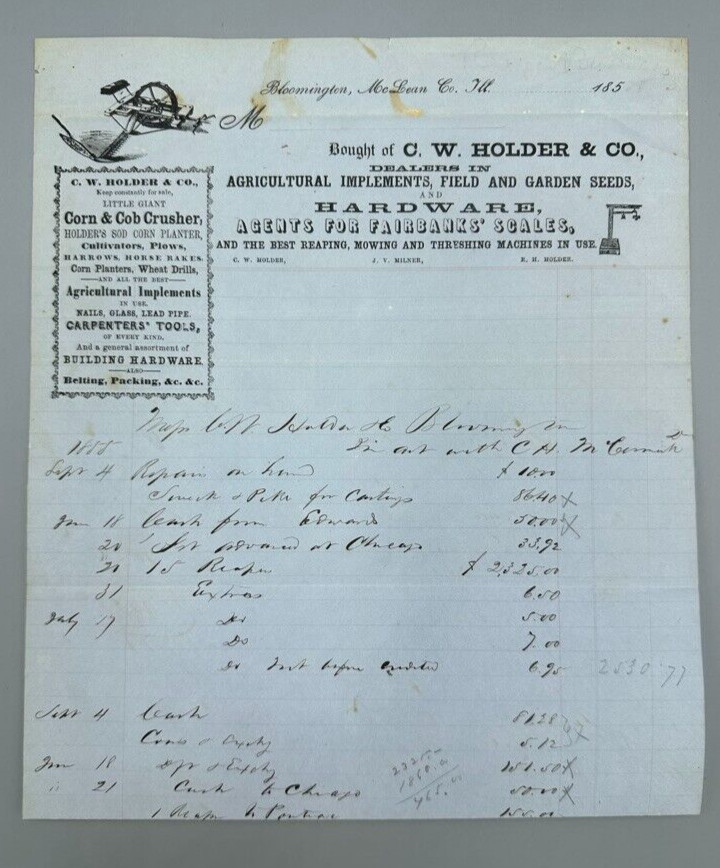 Bloomington, McLean Co. Ill. 185
M
Bought of C. W. HOLDER & CO.,
DEALERS IN
AGRICULTURAL IMPLEMENTS, FIELD AND GARDEN SEEDS,
AND
HARDWARE,
AGENTS FOR FAIRBANKS' SCALES,
AND THE BEST REAPING, MOWING AND THRESHING MACHINES IN USE.
C. W. HOLDER, J. V. MILNER, R. H. HOLDER.
C. W. HOLDER & CO.,
Keep constantly for sale,
LITTLE GIANT
Corn & Cob Crusher,
HOLDER'S SOD CORN PLANTER,
Cultivators, Plows,
HARROWS, HORSE RAKES.
Corn Planters, Wheat Drills,
AND ALL THE BEST
Agricultural Implements
IN USE.
NAILS, GLASS, LEAD PIPE.
CARPENTERS' TOOLS,
OF EVERY KIND,
And a general assortment of
BUILDING HARDWARE.
ALSO
Belting, Packing, &c. &c.
Mess C W. Holder & Co Bloomington
In act with C H. McCormick Dr
Sept 4 Repairs on hand
for Castings 86.40 X
June 18 Cash from Edwards 50.00 X
20 advanced at Chicago 33.92
20 15 Reapers $ 2325.00
31 Extras 6.50
July 17 Do 5.00
Do 7.00
Do Not before credited 6.95 2530.77
Sept 4 Cash 81.28
5.12 X
June 18 151.50 X
" 21 Cash to Chicago 50.00 X
1 Reaper to Pontiac 155.00